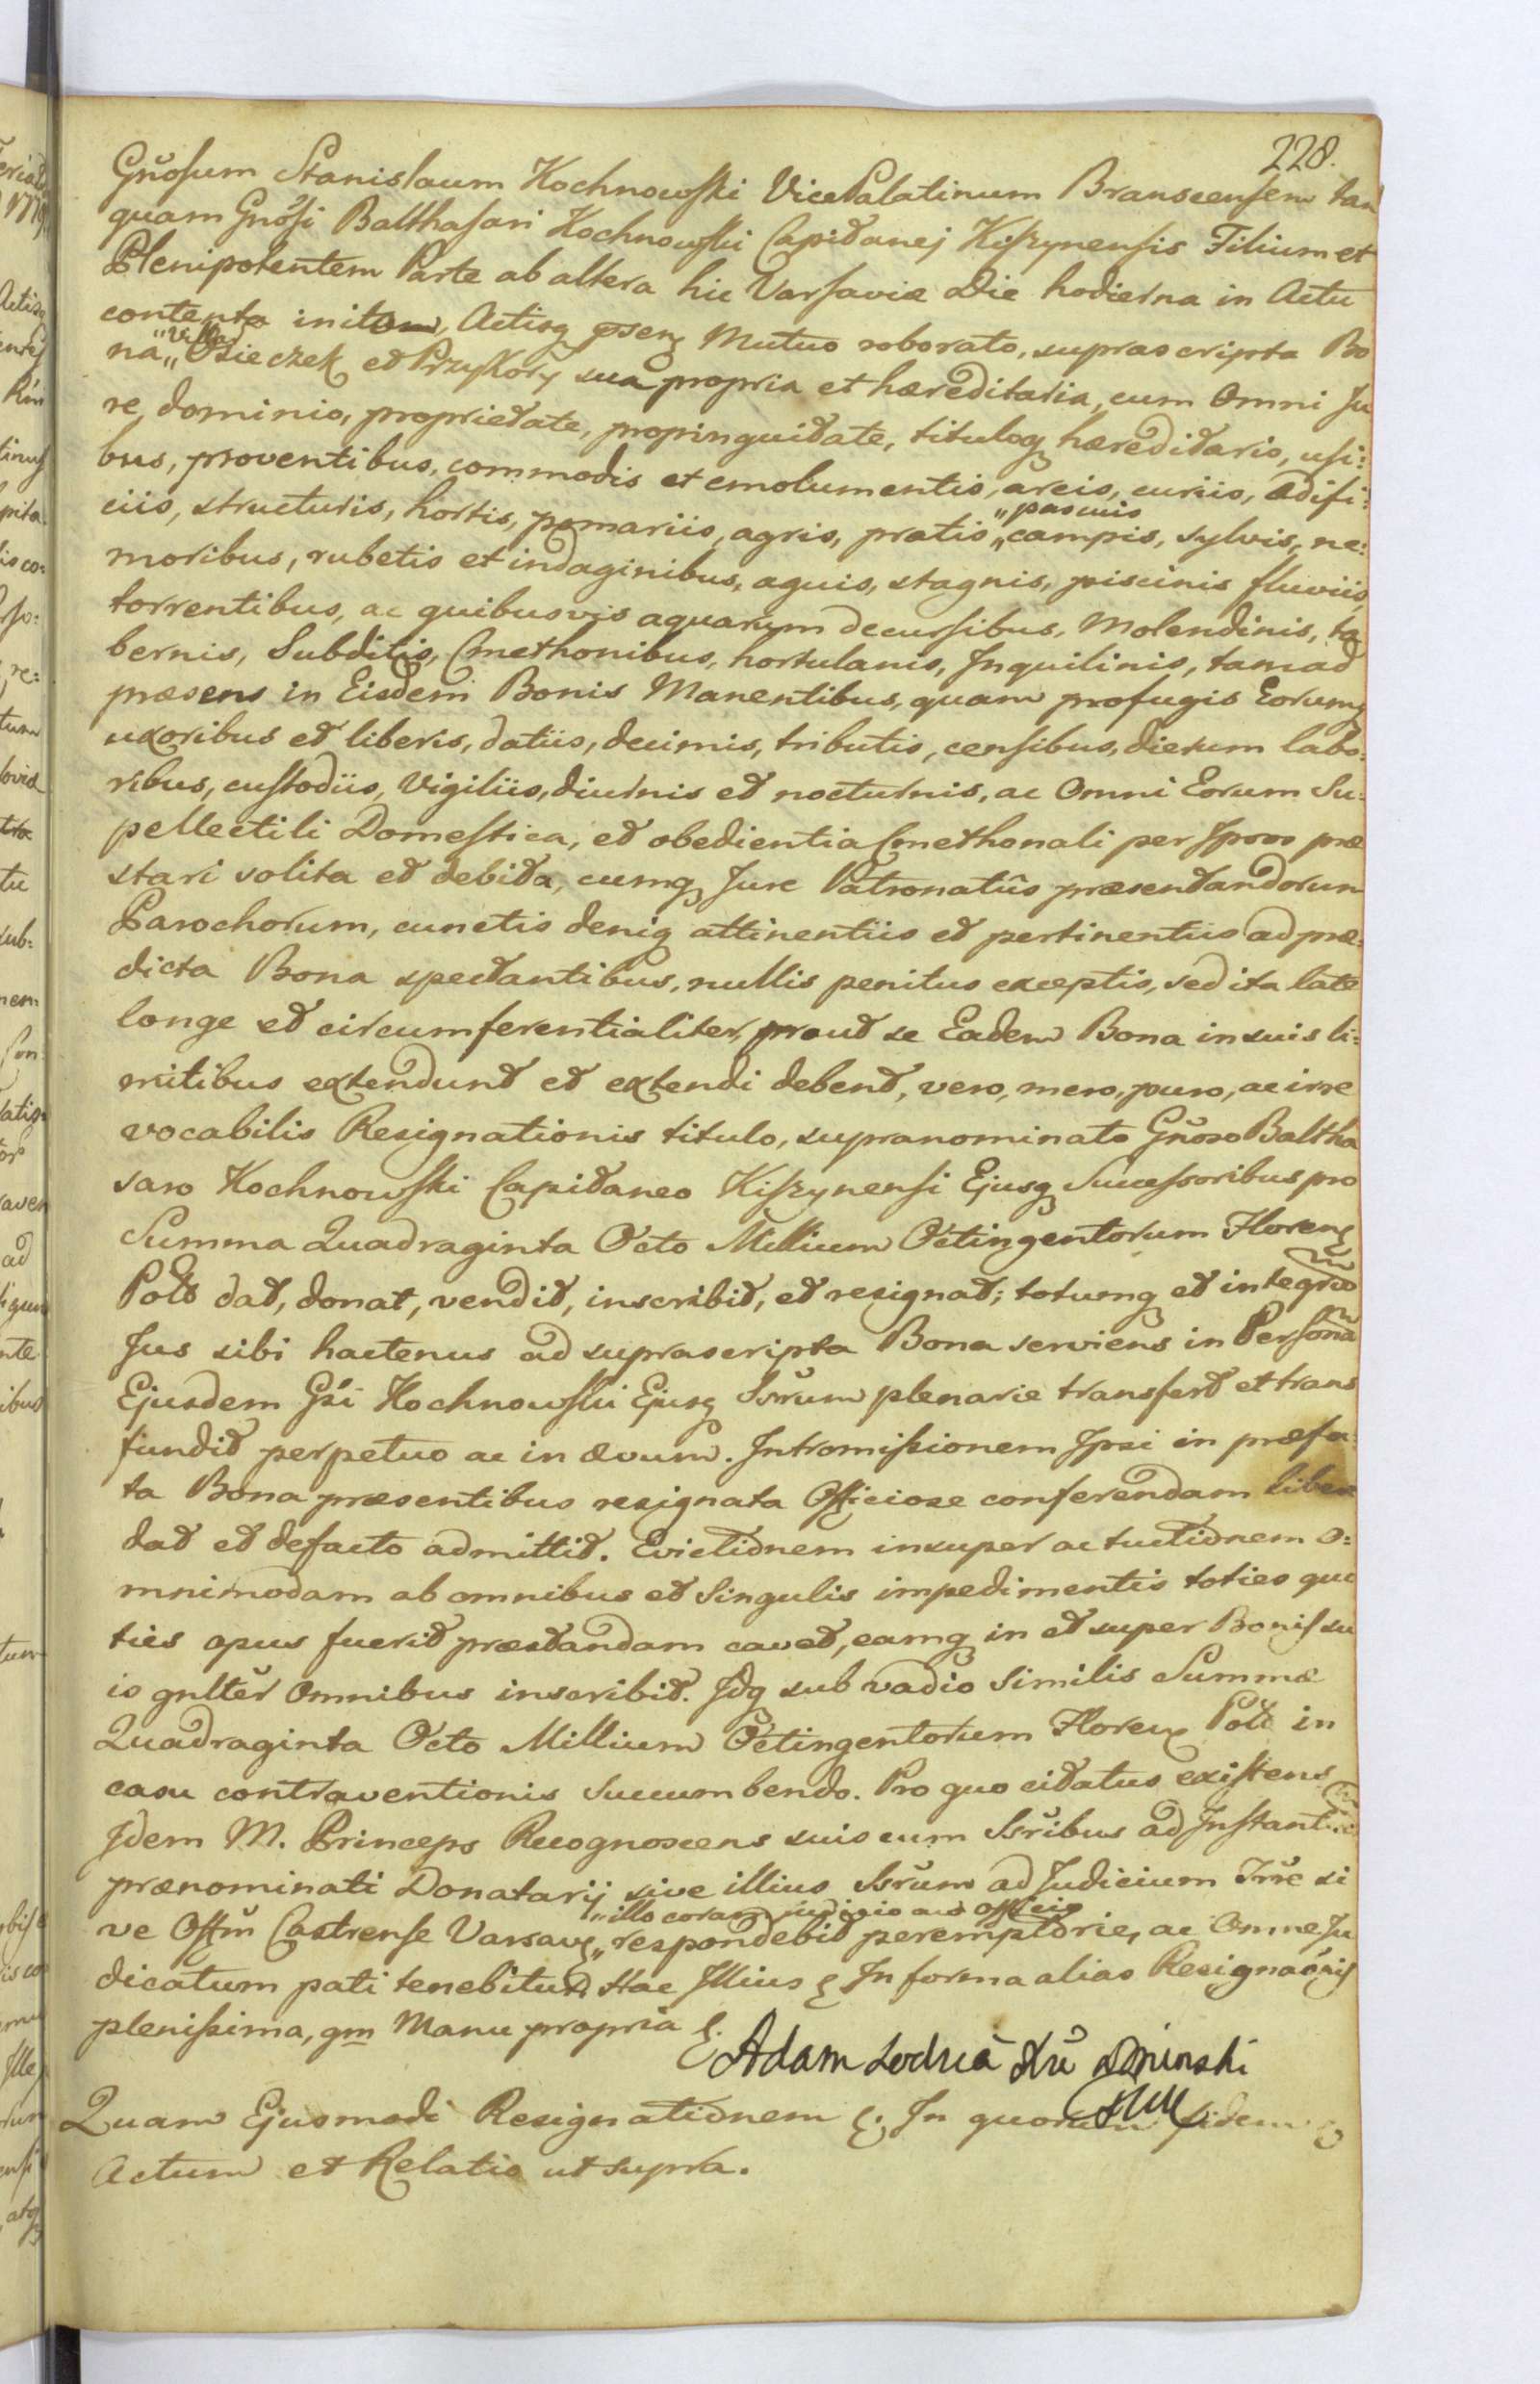 228.
Gnŏsum Stanislaum Kochnowski Vice Palatinum Branscensem tan
quam Gnŏsi Balthasari Kochnowski Capitanej Kiszynensis Filium et
Plenipotentem Parte ab altera hic Varsaviæ Die hodierna in Actu
contenta initam, Actisq præsen Mutuo roborato, suprascripta Bo
na „Villas Osieczek et Przykory sua propria et hæreditaria, cum Omni Ju
re, dominio, proprietate, propinquitate, tituloq hæreditario, usi:
bus, proventibus, commodis et emolumentis, areis, curiis, ædifi:
ciis, structuris, hortis, pomariis, agris, pratis „pascuis campis, sylvis, ne:
moribus, rubetis et indaginibus, aquis, stagnis, piscinis fluviis,
torrentibus, ac quibusvis aquarum decursibus, Molendinis, ta
bernis, Subditis, Cmethonibus, hortulanis, Inquilinis, tam ad
præsens in Eisdem Bonis Manentibus, quam profugis Eorumq
uxoribus et liberis, datiis, decimis, tributis, censibus, dierum labo:
ribus, custodiis, Vigiliis, diurnis et nocturnis, ac Omni Eorum Su:
pellectili Domestica, et obedientia Cmethonali per Ipsos præ
stari solita et debita, cumq Jure Patronatûs præsentandorum
Parochorum, cunctis deniq attinentiis et pertinentiis ad præ:
dicta Bona spectantibus, nullis penitus exceptis, sed ita late
longe et circumferentialiter, prout se Eadem Bona in suis li:
mitibus extendunt et extendi debent, vero, mero, puro, ac irre
vocabilis Resignationis titulo, supranominato Gnŏso Baltha
saro Kochnowski Capitaneo Kiszynensi Ejusq Successoribus pro
Summa Quadraginta Octo Millium Octingentorum Floren
Poll dat, donat, vendit, inscribit, et resignat; totumq et integrum
Jus sibi hactenus ad suprascripta Bona serviens in Personam
Ejusdem Gsi Kochnowski Ejusq Ssrum plenarie transfert et trans
fundit perpetuo ac in ævum. Intromissionem Ipsi in præfa
ta Bona præsentibus resignata Officiose conferendam libere
dat et defacto admittit. Evictionem insuper ac tuitionem o:
mnimodam ab omnibus et Singulis impedimentis toties quo
ties opus fuerit præstandam cavet, eamq in et super Bonis su
is gnlter Omnibus inscribit. Idq sub vadio Similis Summæ
Quadraginta Octo Millium Octingentorum Floren Poll in
casu contraventionis Succumbendo. Pro quo citatus existens
Idem M. Princeps Recognoscens suis cum Ssribus ad Instantiam
prænominati Donatarij sive illius Ssrum ad Judicium Trre si
ve Offm Castrense Varsav „illo coram judicio aut officio respondebit peremptorie, ac Omne Ju
dicatum pati tenebitur. Hac Illius In forma alias Resignaonis
plenissima, qm Manu propria
Adam Lodzia Xŭ Poninski
Quam Ejusmodi Resignationem In quorum fidem
Actum et Relatio ut supra.